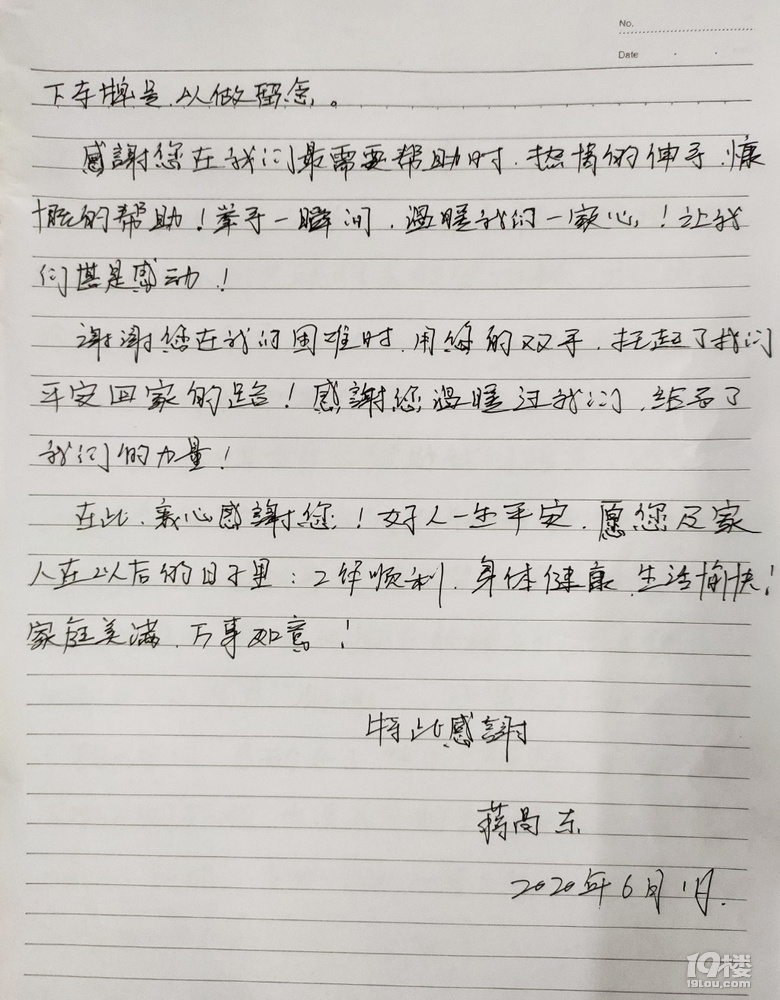 No.
Date
下车牌号以做留念。
感謝您在我们最需要帮助时,热情的伸手,慷
慨的帮助!举手一瞬间,温暖我们一家心!让我
们甚是感动!
谢谢您在我们困难时,用您的双手,托起了我们
平安回家的路!感謝您温暖过我们,给予了
我们的力量!
在此,衷心感謝您!好人一生平安,愿您及家
人在以后的日子里:工作顺利,身体健康,生活愉快!
家庭美满,万事如意!
特此感謝
蒋尚东
2020年6月1月.
19楼
19lou.com